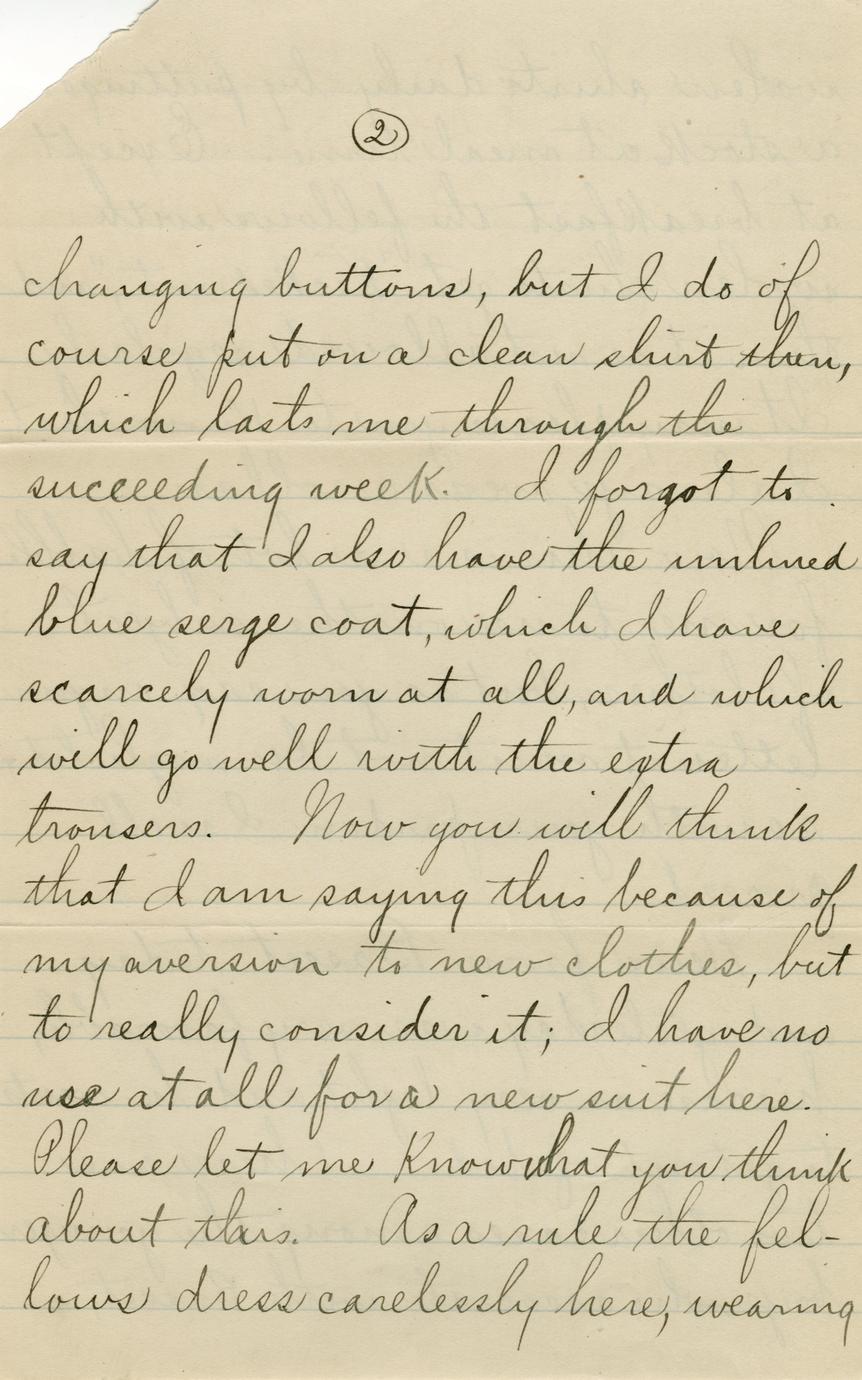 2
changing buttons, but I do of
course put on a clean shirt then,
which lasts me through the
succeeding week. I forgot to
say that I also have the unlined
blue serge coat, which I have
scarcely worn at all, and which
will go well with the extra
trousers. Now you will think
that I am saying this because of
my aversion to new clothes, but
to really consider it; I have no
use at all for a new suit here.
Please let me know what you think
about this. As a rule the fel-
lows dress carelessly here, wearing